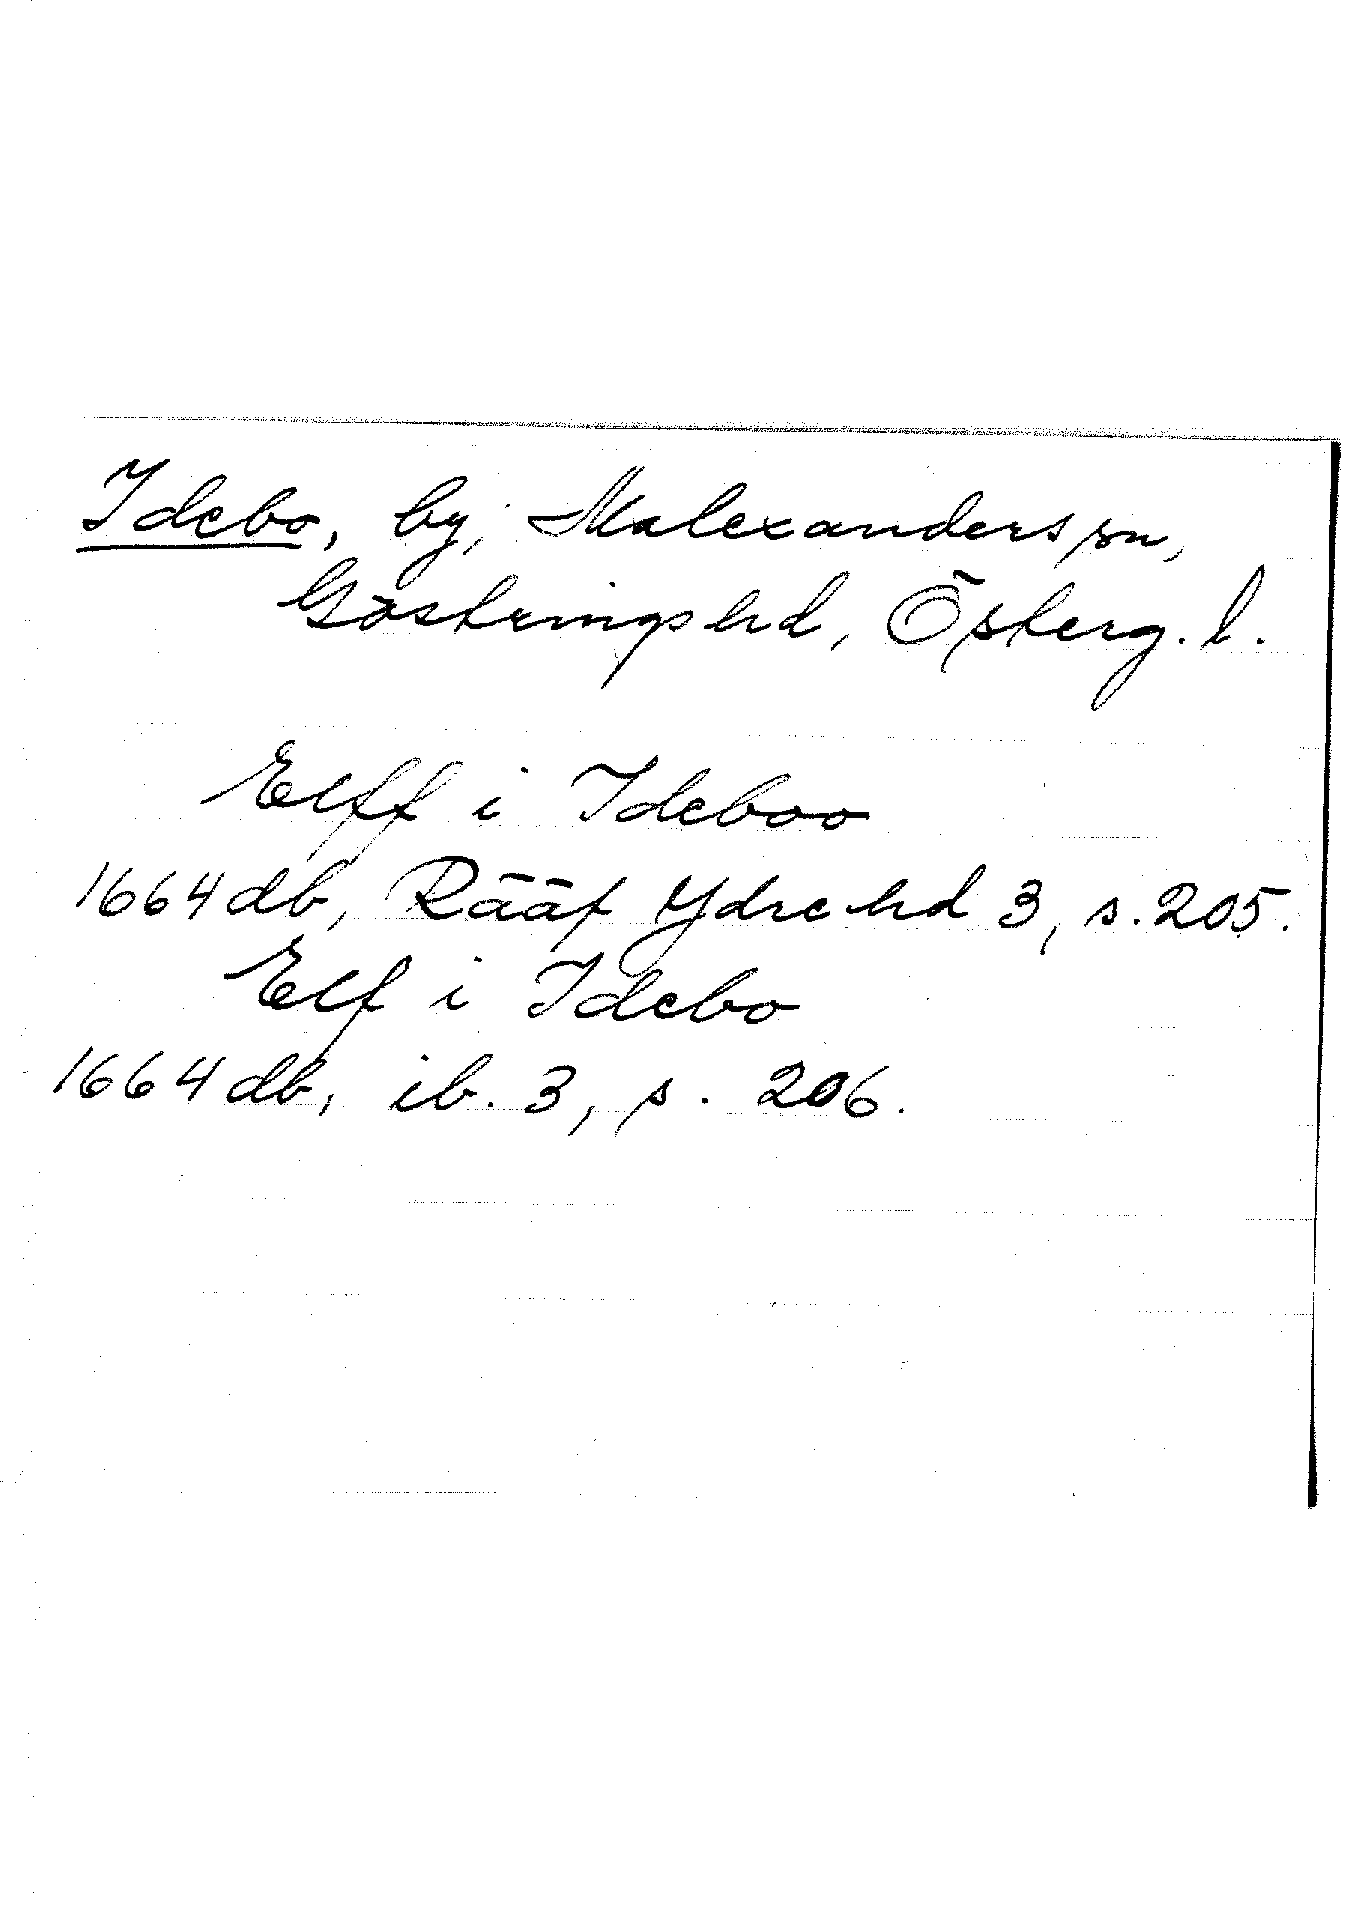 Idebo, by, Malexanders sn,
Göstringshd, Österg. l.
Elff i Ideboo
1664 db, Rääf Ydre hd 3, s. 205.
Elf i Idebo
1664 db, ib. 3, s. 206.